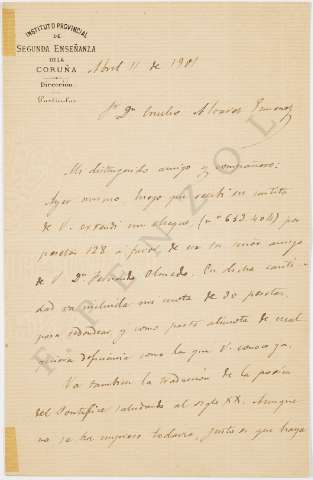 INSTITUTO PROVINCIAL
DE
SEGUNDA ENSEÑANZA
DE LA
CORUÑA
Dirección
Particular
Abril 11 de 1901
Sr. Dn. Emilio Alvarez
Mi distinguido amigo y compañero:
Ayer mismo, luego que recibí su
de V. extendí un cheque (nº 653.404) por
pesetas 128 á favor de
de V. Dn. Fernando Olmedo. En dicha canti-
dad va incluida una cuota de 30 pesetas,
para redondear, y como parte alicuota de cual
quiera deficiencia como la que V. conoce ya.
Va tambien la traducción de la poesía
del Pontífice saludando al siglo XX. Aunque
no se ha impreso todavía, justo es que haya
F. PENZOL